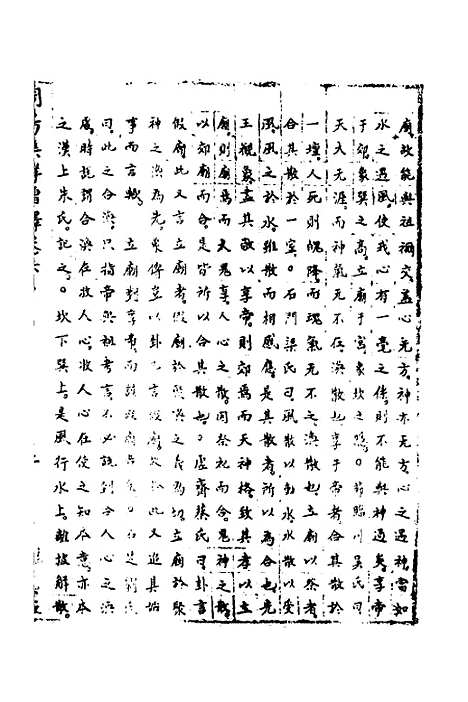 廟故能與祖禰交孟心无方神亦无方心之遇神當如
水之遇風使我心有一毫之係則不能與神遇矣享帝
于郊象巽之高立廟于宮象坎之隱○臨川吳氏曰
天大无涯而神氣无不在渙散也享于帝者合其散於
一壇人死則魄降而魂氣无不之渙散也立廟以祭者
合其散於一室○石門梁氏曰風散以動水水散以受
風風之於水雖散而相感應是其散者所以為合也先
王觀象孟其致以享帝則郊焉而天神格致其孝以立
廟則廟焉而人鬼享人心之散因祭祀而合鬼神之散
以郊廟而合是皆所以合其散也○虛齋蔡氏曰卦言
假廟此又言立廟者假廟於聚渙之義為切立廟於聚
神之渙為先象傳豈以卦已言假廟故於此又追其始
事而言歟 立廟對享帝而 石是 氏
曰此之合渙只指帝與祖考言不必說到合人心之渙
處時說謂合渙在收人心收人心在使之知 意亦本
之漢上朱氏記之○坎下巽上是風行水上離披解散